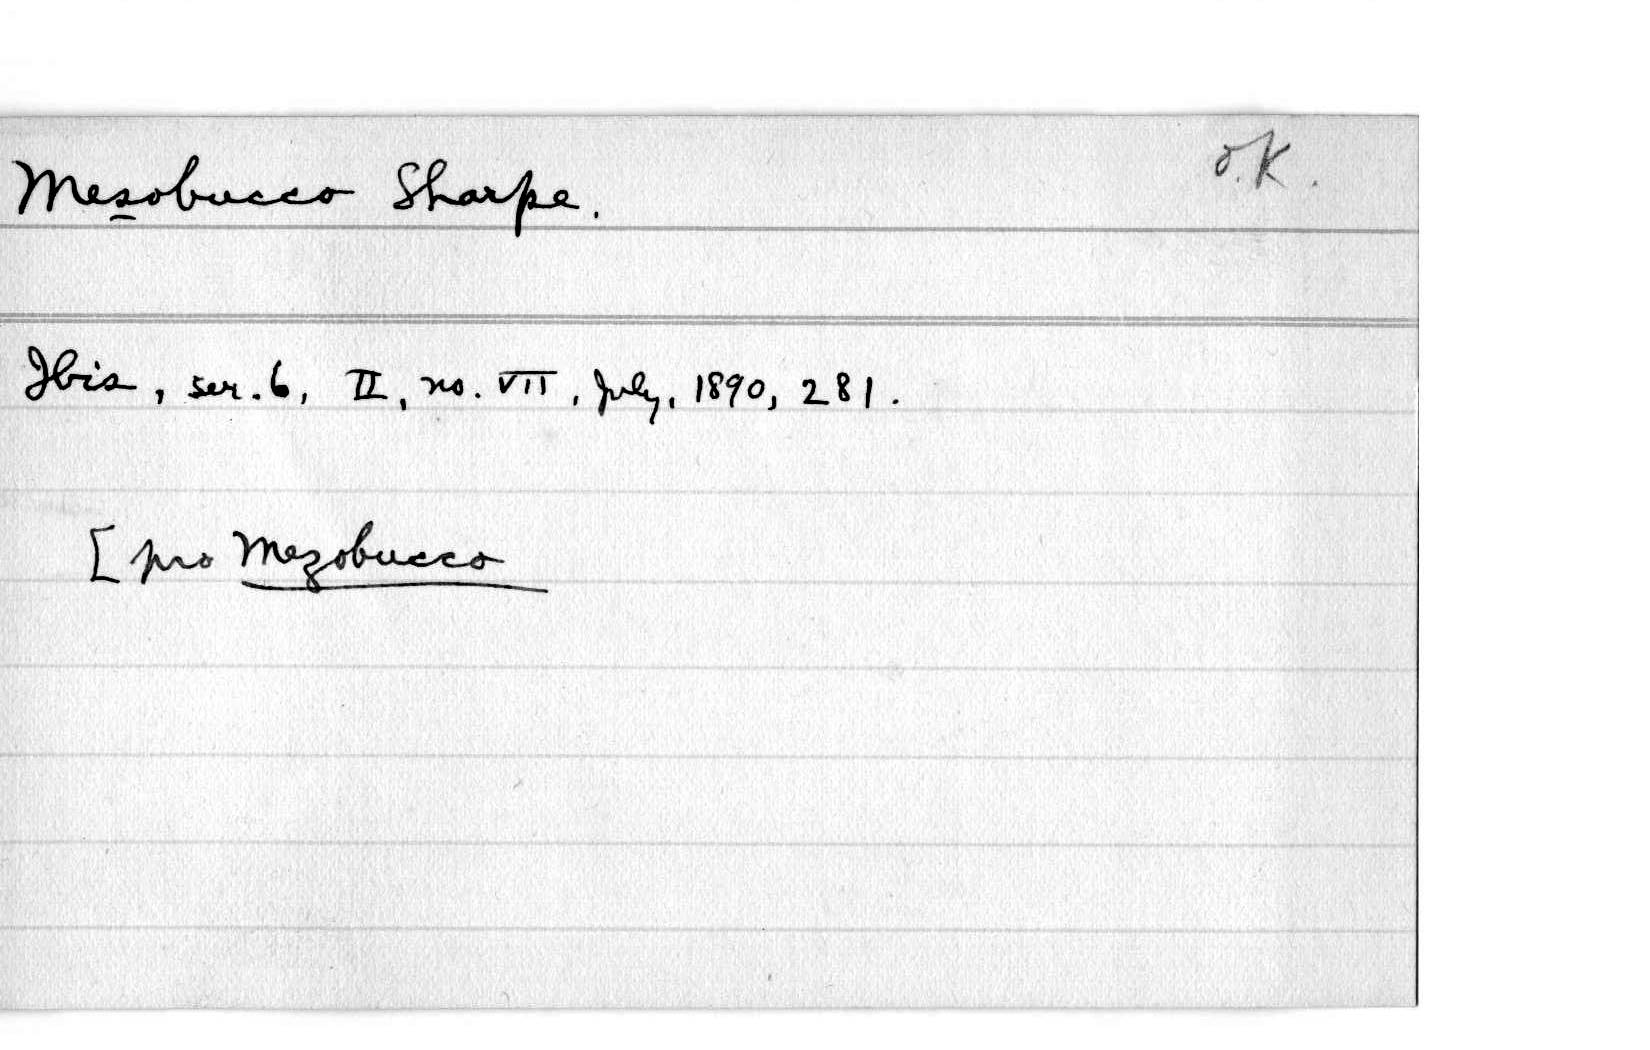 Mesobucco Sharpe.
O.K.
Ibis, ser. 6, II, no. VII, July, 1890, 281.
[ pro Mezobucco